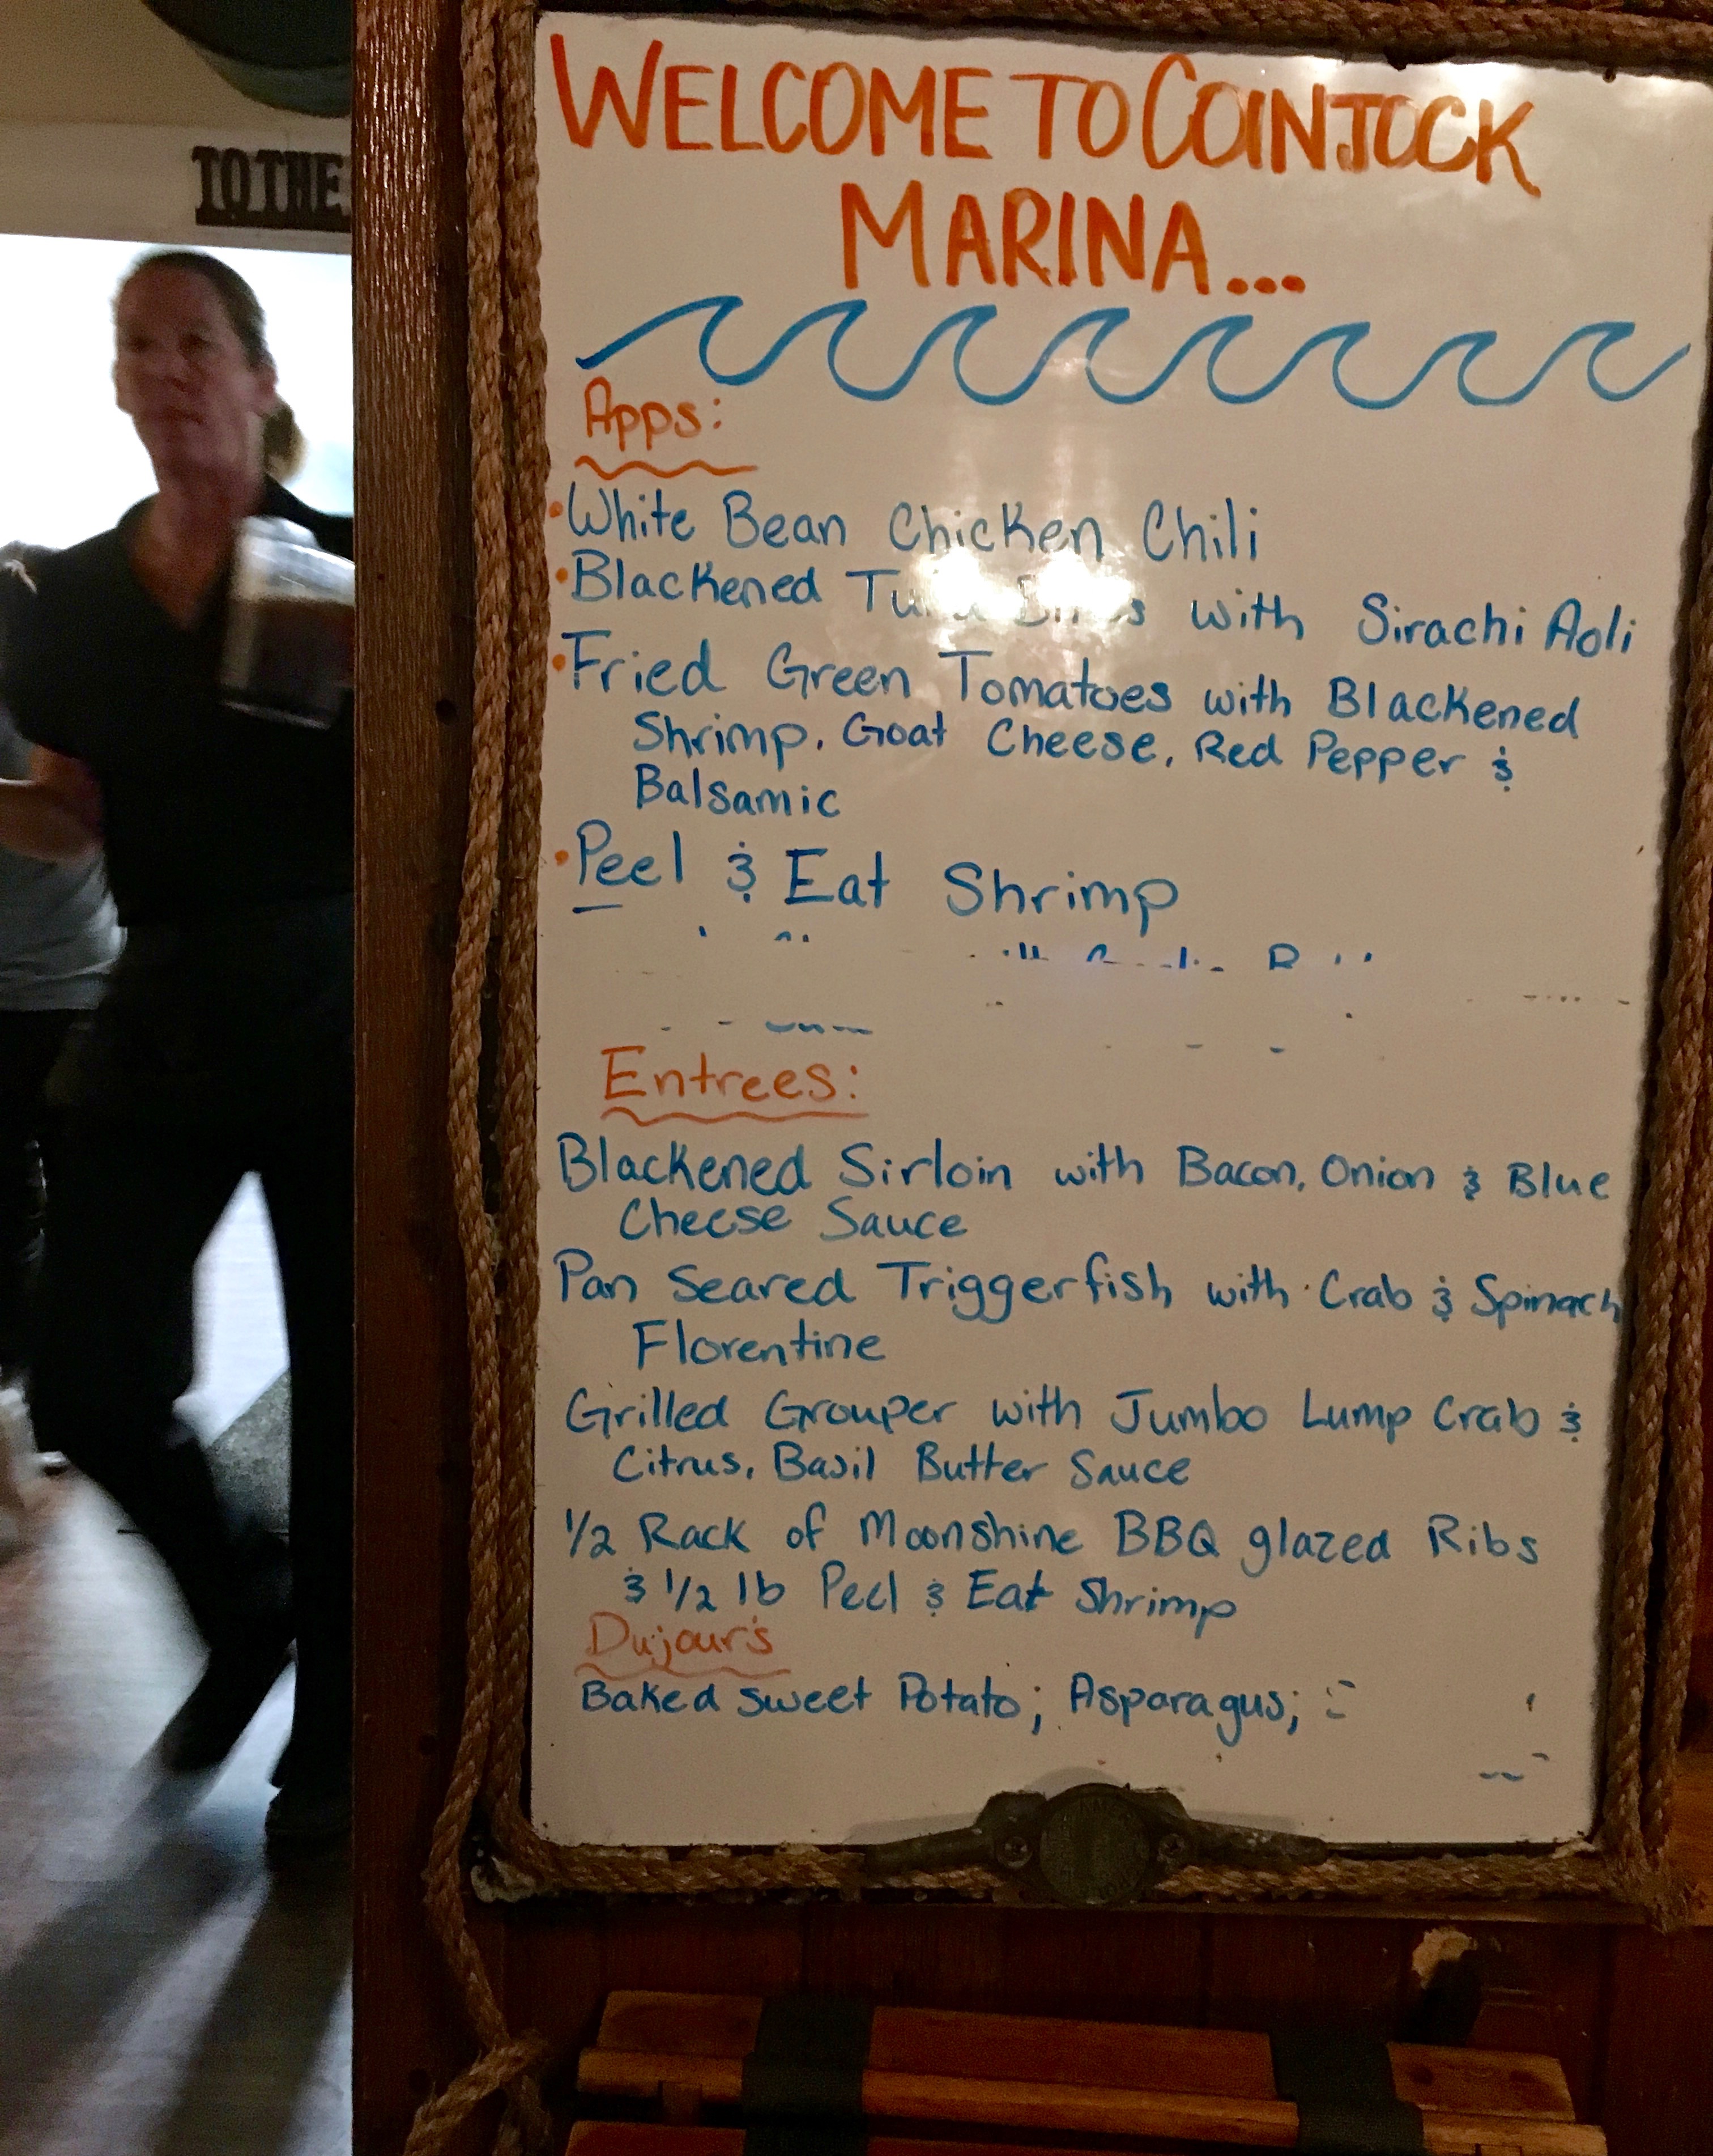 TO THE
WELCOME TO COINJOCK
MARINA...
Apps:
•White Bean Chicken Chili
•Blackened Tuna with Sirachi Aoli
•Fried Green Tomatoes with Blackened
Shrimp, Goat Cheese, Red Pepper &
Balsamic
•Peel & Eat Shrimp
Entrees:
Blackened Sirloin with Bacon, Onion & Blue
Cheese Sauce
Pan Seared Triggerfish with Crab & Spinach
Florentine
Grilled Grouper with Jumbo Lump Crab &
Citrus, Basil Butter Sauce
1/2 Rack of Moonshine BBQ glazed Ribs
& 1/2 lb Peel & Eat Shrimp
Dujour's
Baked sweet Potato; Asparagus;